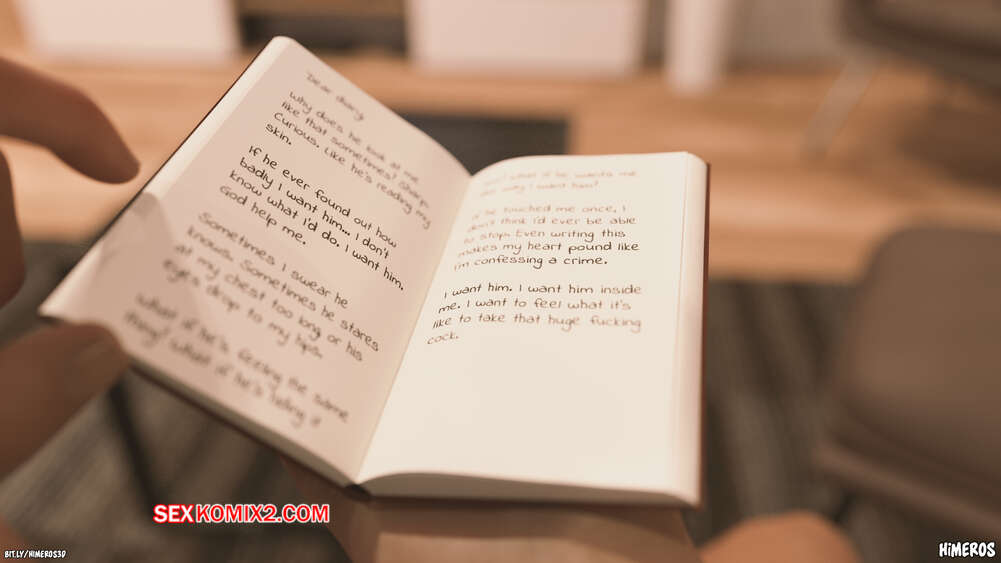 Dear diary
why does he look at me
like that sometimes? Sharp.
Curious. Like he's reading my
skin.
If he ever found out how
badly I want him... I don't
know what I'd do. I want him.
God help me.
Sometimes I swear he
knows. Sometimes he stares
at my chest too long or his
eyes drop to my hips.
what if he's feeling the same
thing? what if he's hiding it
too? what if he wants me
the way I want him?
If he touched me once, I
don't think I'd ever be able
to stop. Even writing this
makes my heart pound like
I'm confessing a crime.
I want him. I want him inside
me. I want to feel what it's
like to take that huge fucking
cock.
SEXKOMIX2.COM
BIT.LY/HIMEROS3D
HiMEROS